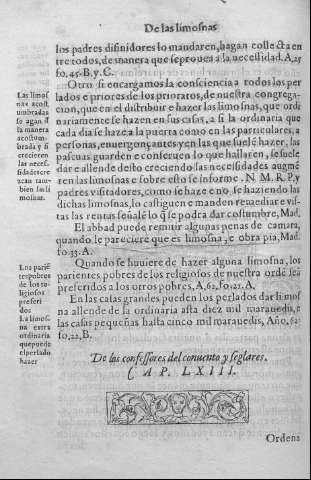 De las limosnas
los padres disinidores lo mandaren, hagan collecta en
tre todos, de manera que se prouea a la necessidad. A, 25
fo. 45. B. y C.
Otro si encargamos la consciencia a todos los per
lados e priores de los prioratos, de nuestra congrega-
cion, que en el distribuir e hazer las limosnas, que ordi
nariamente se hazen en sus casas, a si la ordinaria que
cada dia se haze a la puerta como en las particulares, a
personas, enuergonçantes y en las que suelẽ hazer, las
pascuas guarden e conseruen lo que hallaren, se suele
dar e allende desto creciendo las necessidades augmẽ
ten las limosnas e sobre esto se informe. N. M. R. P. y
padres visitadores, como se haze e no, se haziendo las
dichas limosnas, lo castiguen e manden remediar e vis
tas las rentas señalẽ lo q̃ se podra dar costumbre, Mad.
El abbad puede remitir algunas penas de camara,
quando le pareciere que es limosna, e obra pia, Mad.
fo. 33. A.
Quando se huuiere de hazer alguna limosna, los
parientes pobres de los religiosos de nuestra ordẽ seã
preferidos a los otros pobres, A, 62. fo. 21. A.
En las casas grandes pueden los perlados dar limos
na allende de la ordinaria asta diez mil marauedis, e
las casas pequeñas hasta cinco mil marauedis, Año, 62.
fo, 22, B.
Las limos
nas acost
umbradas
se agan a
la manera
acostum-
brada y si
crecieren
las neces.
sidades cre
zcan tam-
bien las li
mosnas.
Los pariẽ
tes pobres
de los re-
ligiosos
preferi
dos
La limos.
na extra
ordinaria
que puede
el perlado
hazer
De los confessores del conuento y seglares.
CAP. LXIII.
Ordena